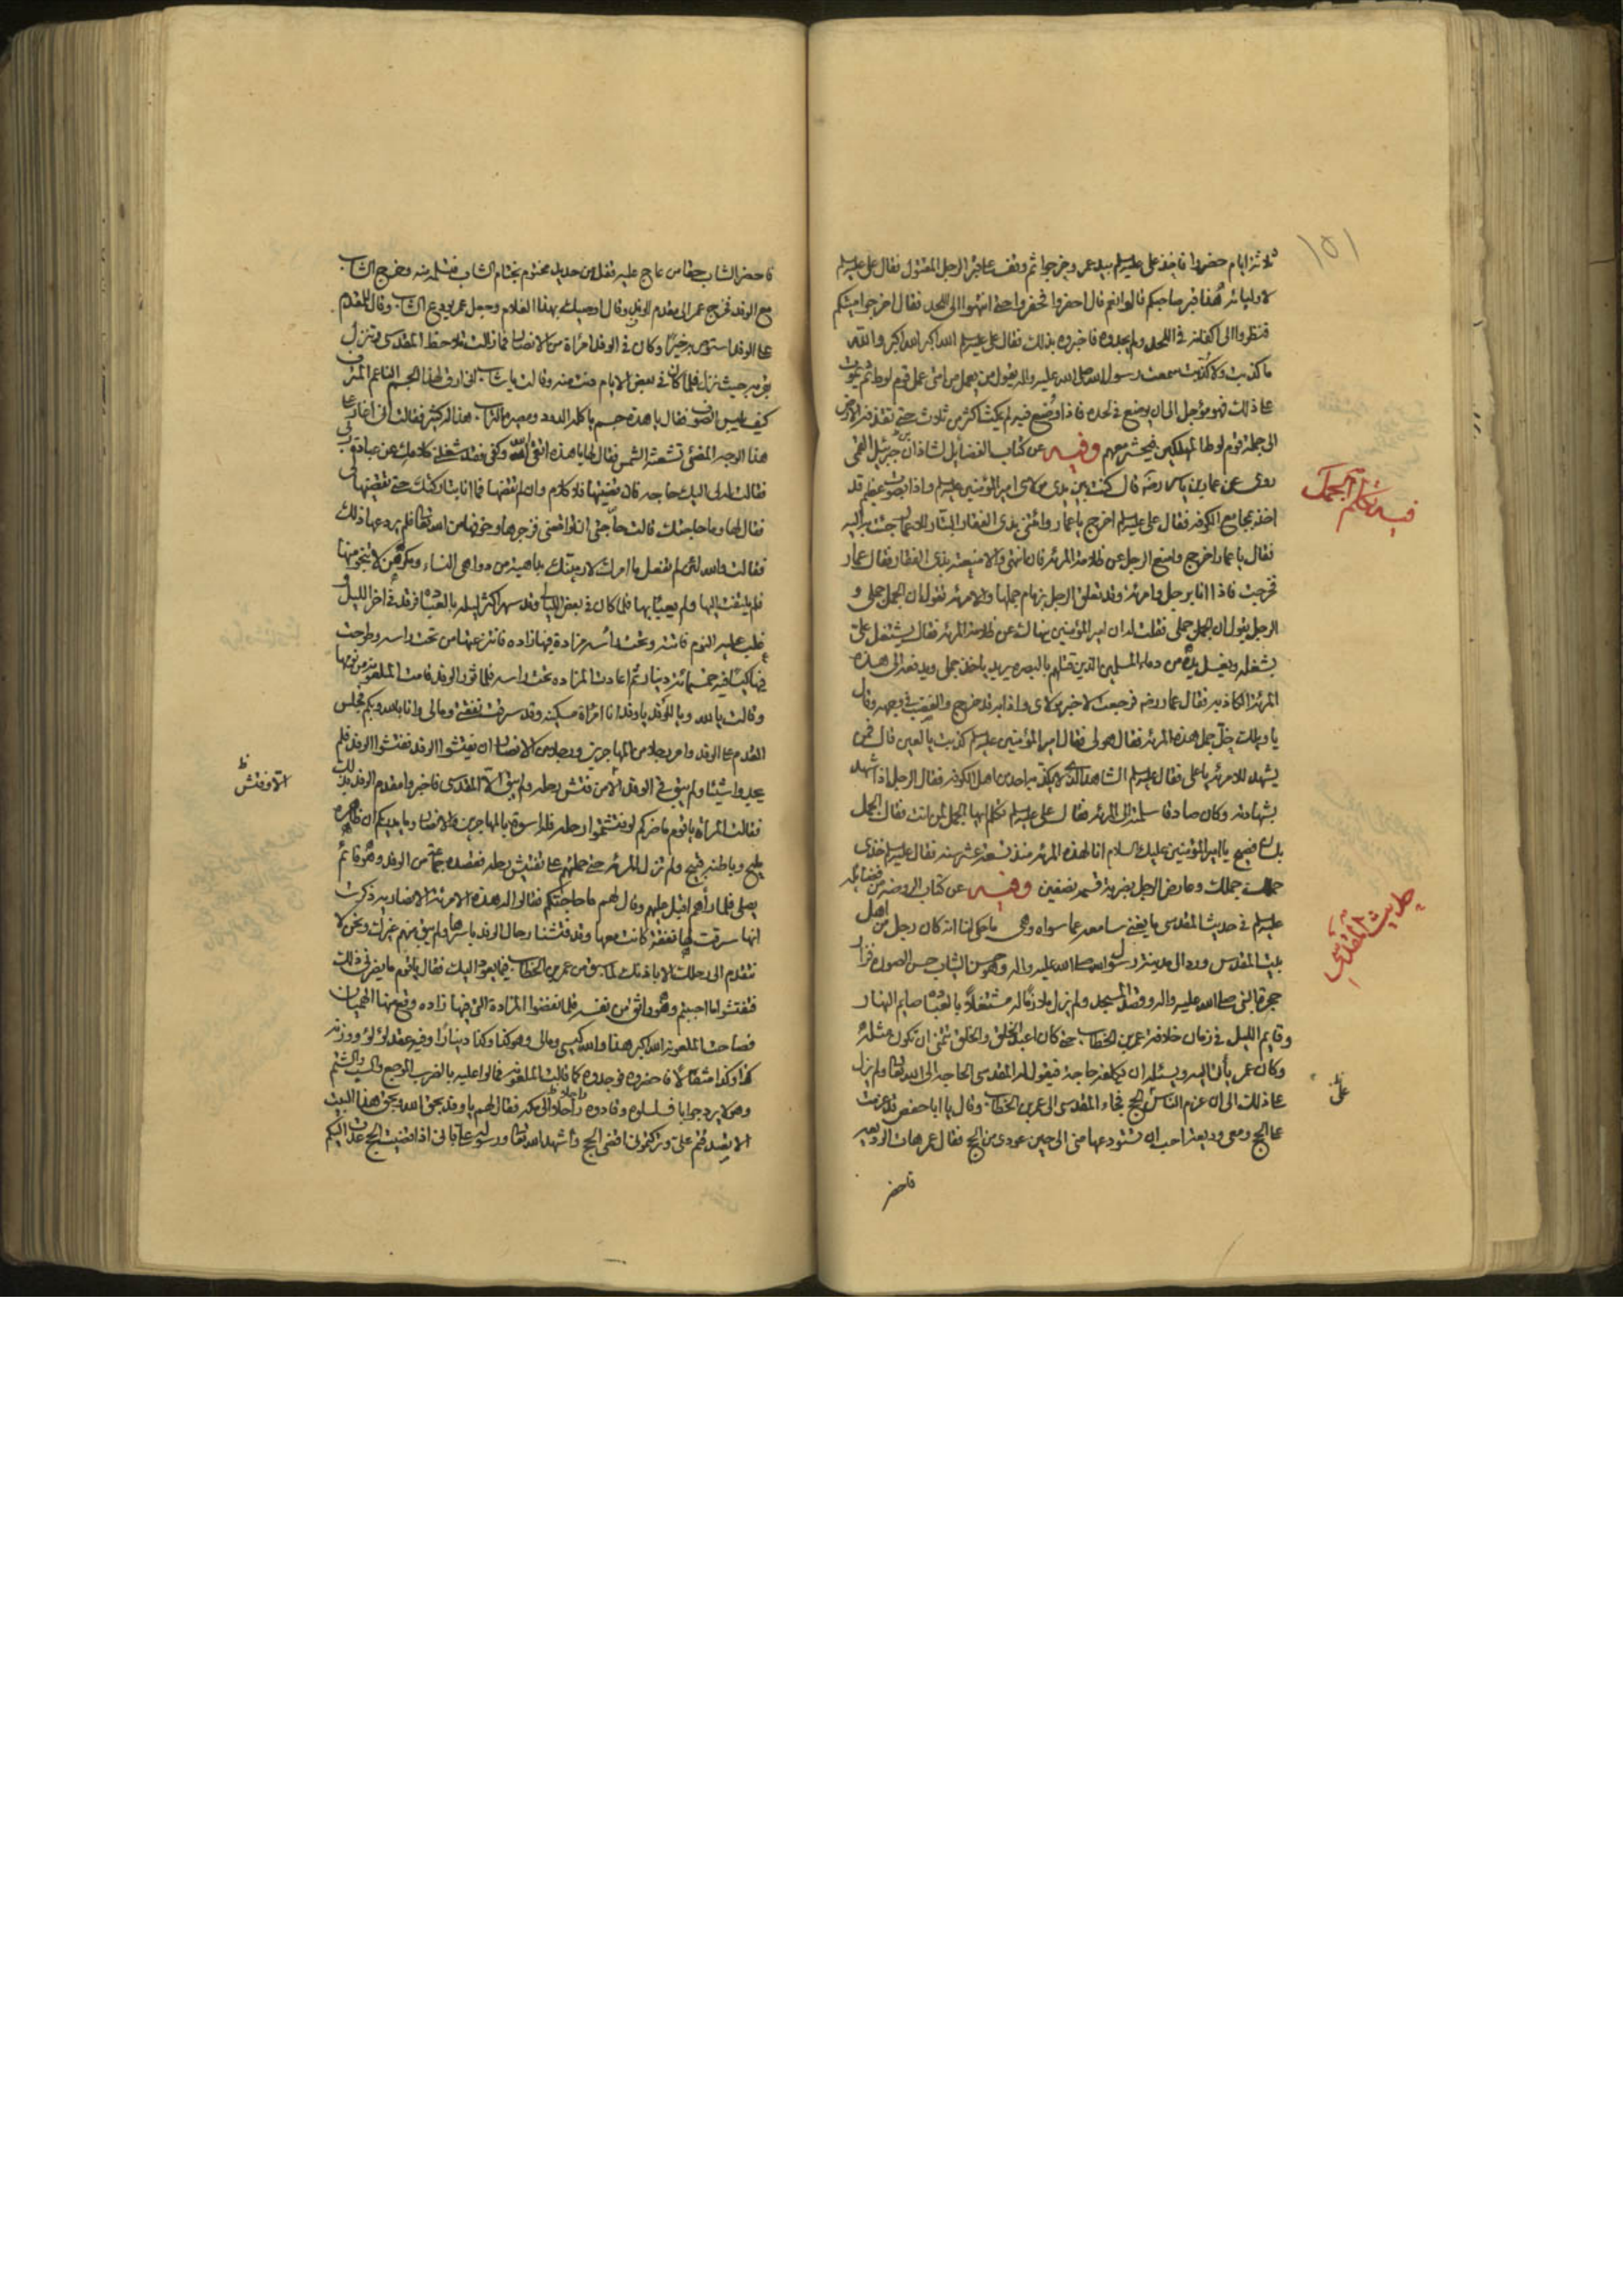 ثلاثة ايام حضروا فاخذ علي عليه السلم بيد عمر وخرجوا ثم وقف على قبر الرجل المقتول فقال علي عليه السلم
لاوليائه هذا قبر صاحبكم قالوا نعم قال احفروا فحفروا حتى انتهوا الى اللحد فقال اخرجوا ميتكم
فنظروا الى اكفانه في اللحد ولم يجدوه فاخبروه بذلك فقال علي عليه السلم الله اكبر الله اكبر والله
ما كذبت ولا كذبت سمعت رسول الله صلى الله عليه واله يقول من يعمل من امتي عمل قوم لوط ثم يموت
على ذلك فهو مؤجل الى ان يوضع في لحده فاذا وضع فيه لم يمكث اكثر من ثلاث حتى تقذفه الارض
الى جملة قوم لوط المهلكين فيحشر معهم وفيه عن كتاب الفضايل لشاذان بن جبرئيل القمي
روى عن عمار بن ياسر رضه قال كنت بين يدي مولاي امير المؤمنين عليه السلم واذا بصوت عظيم قد
اخذ بجامع الكوفة فقال علي عليه السلم اخرج يا عمار وائتني بذي الفقار البتار للاعمار فجئت به اليه
فقال يا عمار اخرج وامنع الرجل عن ظلامة المرئة فان انتهى والا منعته بذي الفقار فقال عمار
فخرجت فاذا انا برجل وامرئة وقد تعلق الرجل بزمام جملها والامرئة تقول ان الجمل جملي و
الرجل يقول ان الجمل جملي فقلت له ان امير المؤمنين ينهاك عن ظلامة المرئة فقال يشتغل علي
بشغله ويغسل يده من دماء المسلمين الذين قتلهم بالبصرة يريد ياخذ جملي ويدفعه الى هذه
المرئة الكاذبة فقال عمار رضه فرجعت لاخبر مولاي واذا به قد خرج والغضب في وجهه وقال
يا ويلك خل جمل هذه المرئة فقال هو لي فقال امير المؤمنين عليه السلم كذبت يا لعين قال فمن
يشهد للامرئة يا علي فقال عليه السلم الشاهد الذي لا يكذبه احد من اهل الكوفة فقال الرجل اذا شهد
بشهادته وكان صادقا سلمته الى المرئة فقال علي عليه السلم تكلم ايها الجمل لمن انت فقال الجمل
بلسان فصيح يا امير المؤمنين عليك السلام انا لهذه المرئة منذ تسعة عشر سنة فقال عليه السلم خذي
جملك وعارض الرجل بضربة قسمه نصفين وفيه عن كتاب الروضة من فضائله
عليه السلم في حديث المقدسي ما يغني سامعه عما سواه وهي ما حكي لنا انه كان رجل من اهل
بيت المقدس ورد الى مدينة رسول الله صلى الله عليه واله وهو حسن الشباب حسن الصورة فزار
حجرة النبي صلى الله عليه واله وقصد المسجد ولم يزل ملازما له مشتغلا بالعبادة صايم النهار
وقايم الليل في زمان خلافة عمر بن الخطاب حتى كان اعبد الخلق والخلق تتمنى ان تكون مثله
وكان عمر يأتي اليه ويسئله ان يكلفه حاجة فيقول له المقدسي الحاجة الى الله تعالى ولم يزل
على ذلك الى ان عزم الناس الحج فجاء المقدسي الى عمر بن الخطاب وقال يا ابا حفص قد عزمت
على الحج ومعي وديعة احب ان تستودعها مني الى حين عودي من الحج فقال عمر هات الوديعة
فاحضر
١٥١
فيه تكلم الجمل
حديث المقدسي
فاحضر الشاب حقا من عاج عليه قفل من حديد مختوم بختام الشاب فتسلمه منه وخرج الشاب
مع الوفد فخرج عمر الى مقدم الوفد وقال اوصيك بهذا الغلام وجعل عمر يودع الشاب وقال للمقدم
على الوفد استوص به خيرا وكان في الوفد امراة من الانصار فما زالت تلاحظ المقدسي وتنزل
بقربه حيث نزل فلما كان في بعض الايام دنت منه وقالت يا شاب اني ارق لهذا الجسم الناعم المترف
كيف يلبس الصوف فقال يا هذه جسم ياكله الدود ومصيره التراب هذا له كثير فقالت اني اغار على
هذا الوجه المضئ تشعثه الشمس فقال لها يا هذه اتقي الله وكفي فقد شغلني كلامك عن عبادة ربي
فقالت له لي اليك حاجة فان قضيتها فلا كلام وان لم تقضها فما انا بتاركتك حتى تقضيها لي
فقال لها وما حاجتك قالت حاجتي ان تواقعني فزجرها وخوفها من الله تعالى فلم يردعها ذلك
فقالت والله لئن لم تفعل ما امرك لارمينك بداهية من دواهي النساء ومكرهن لا تنجو منها
فلم يلتفت اليها ولم يعبأ بها فلما كان في بعض الليالي وقد سهر اكثر ليله بالعبادة فرقد في اخر الليل و
غلب عليه النوم فاتته وتحت رأسه مزادة فيها زاده فانتزعتها من تحت راسه وطرحت
فيها كيسا فيه خمسمائة دينار ثم اعادت المزادة تحت راسه فلما ثور الوفد قامت الملعونة من نومها
وقالت يا لله ويا للوفد يا وفد انا امراة مسكينة وقد سرقت نفقتي ومالي وانا بالله وبكم فجلس
المقدم على الوفد وامر رجلا من المهاجرين ورجلا من الانصار ان يفتشوا الوفد ففتشوا الوفد فلم
يجدوا شيئا ولم يبق في الوفد الا من فتش رحله ولم يبق الا المقدسي فاخبروا مقدم الوفد بذلك
فقالت المرأة يا قوم ما ضركم لو فتشتموا رحله فله اسوة بالمهاجرين والانصار وما يدريكم ان ظاهره
مليح وباطنه قبيح ولم تزل المرئة حتى حملتهم على تفتيش رحله فقصده جماعة من الوفد وهو قائم
يصلي فلما رأهم اقبل عليهم وقال لهم ما حاجتكم فقالوا له هذه الامرئة الانصارية ذكرت
انها سرقت لها نفقة كانت معها وقد فتشنا رحال الوفد باسرها ولم يبق منهم غيرك ونحن لا
نتقدم الى رحلك الا باذنك لما سبق من عمر بن الخطاب فيما يعود اليك فقال يا قوم ما يضرني ذلك
ففتشوا ما احببتم وهو واثق من نفسه فلما نفضوا المزادة التي فيها زاده وقع منها الهميان
فصاحت الملعونة الله اكبر هذا والله كيسي ومالي وهو كذا وكذا دينارا وفيه عقد لؤلؤ ووزنه
كذا وكذا مثقالا فاحضروه فوجدوه كما قالت الملعونة فمالوا عليه بالضرب الموجع والسب والشتم
وهو لا يرد جوابا فسلسلوه وقادوه راجلا الى مكة فقال لهم يا وفد بحق الله وبحق هذا البيت
الا تصدقتم علي وتركتموني اقضي الحج واشهد الله تعالى ورسوله علي باني اذا قضيت الحج عدت اليكم
الا وفتش